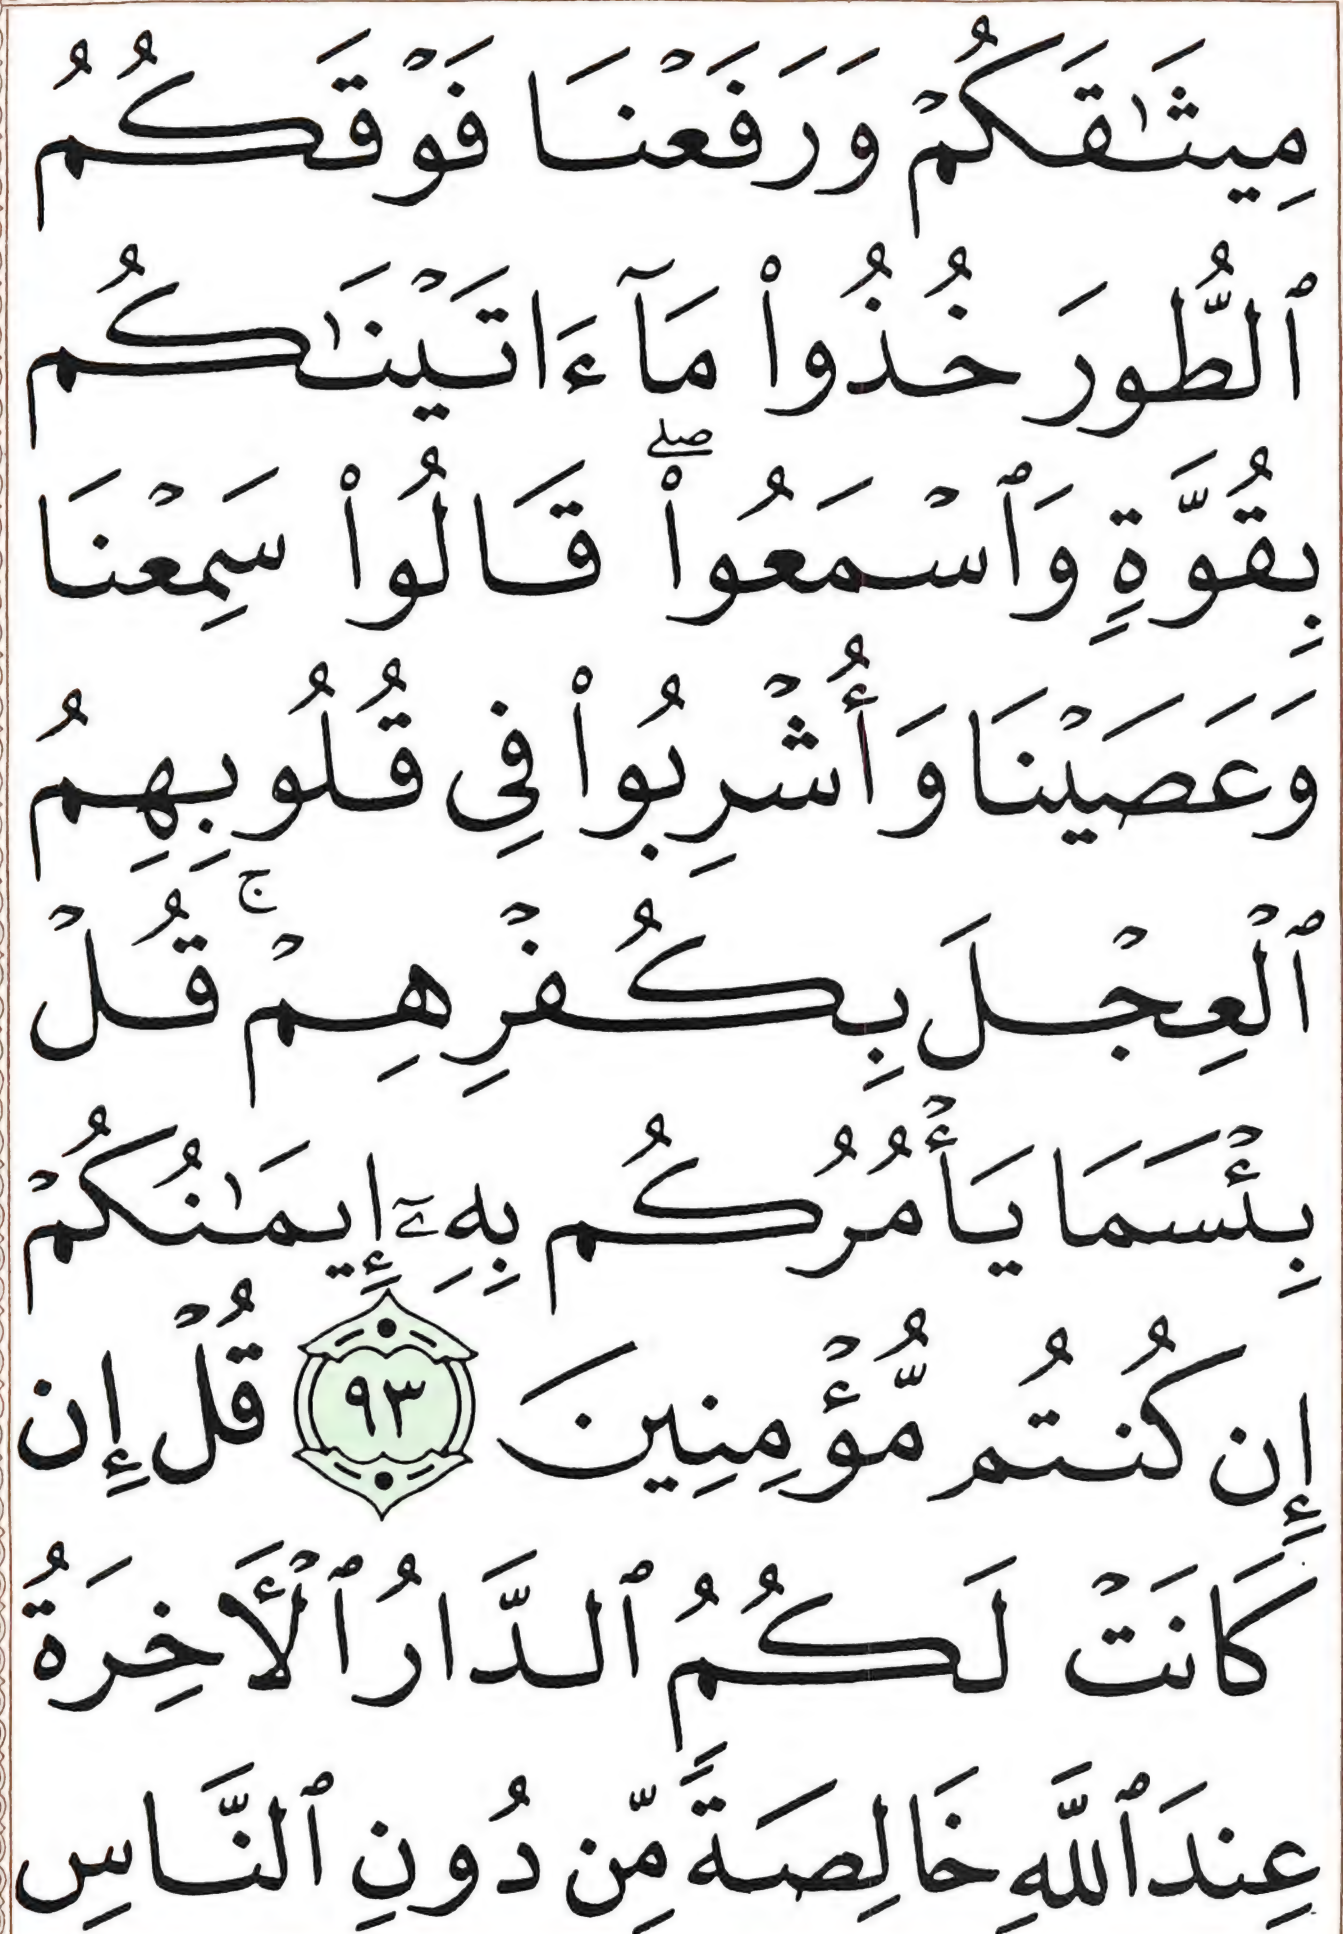 مِيثَـٰقَكُمْ وَرَفَعْنَا فَوْقَكُمُ
ٱلطُّورَ خُذُوا۟ مَآ ءَاتَيْنَـٰكُم
بِقُوَّةٍ وَٱسْمَعُوا۟ ۖ قَالُوا۟ سَمِعْنَا
وَعَصَيْنَا وَأُشْرِبُوا۟ فِى قُلُوبِهِمُ
ٱلْعِجْلَ بِكُفْرِهِمْ ۚ قُلْ
بِئْسَمَا يَأْمُرُكُم بِهِۦٓ إِيمَـٰنُكُمْ
إِن كُنتُم مُّؤْمِنِينَ ٩٣ قُلْ إِن
كَانَتْ لَكُمُ ٱلدَّارُ ٱلْأَخِرَةُ
عِندَ ٱللَّهِ خَالِصَةً مِّن دُونِ ٱلنَّاسِ